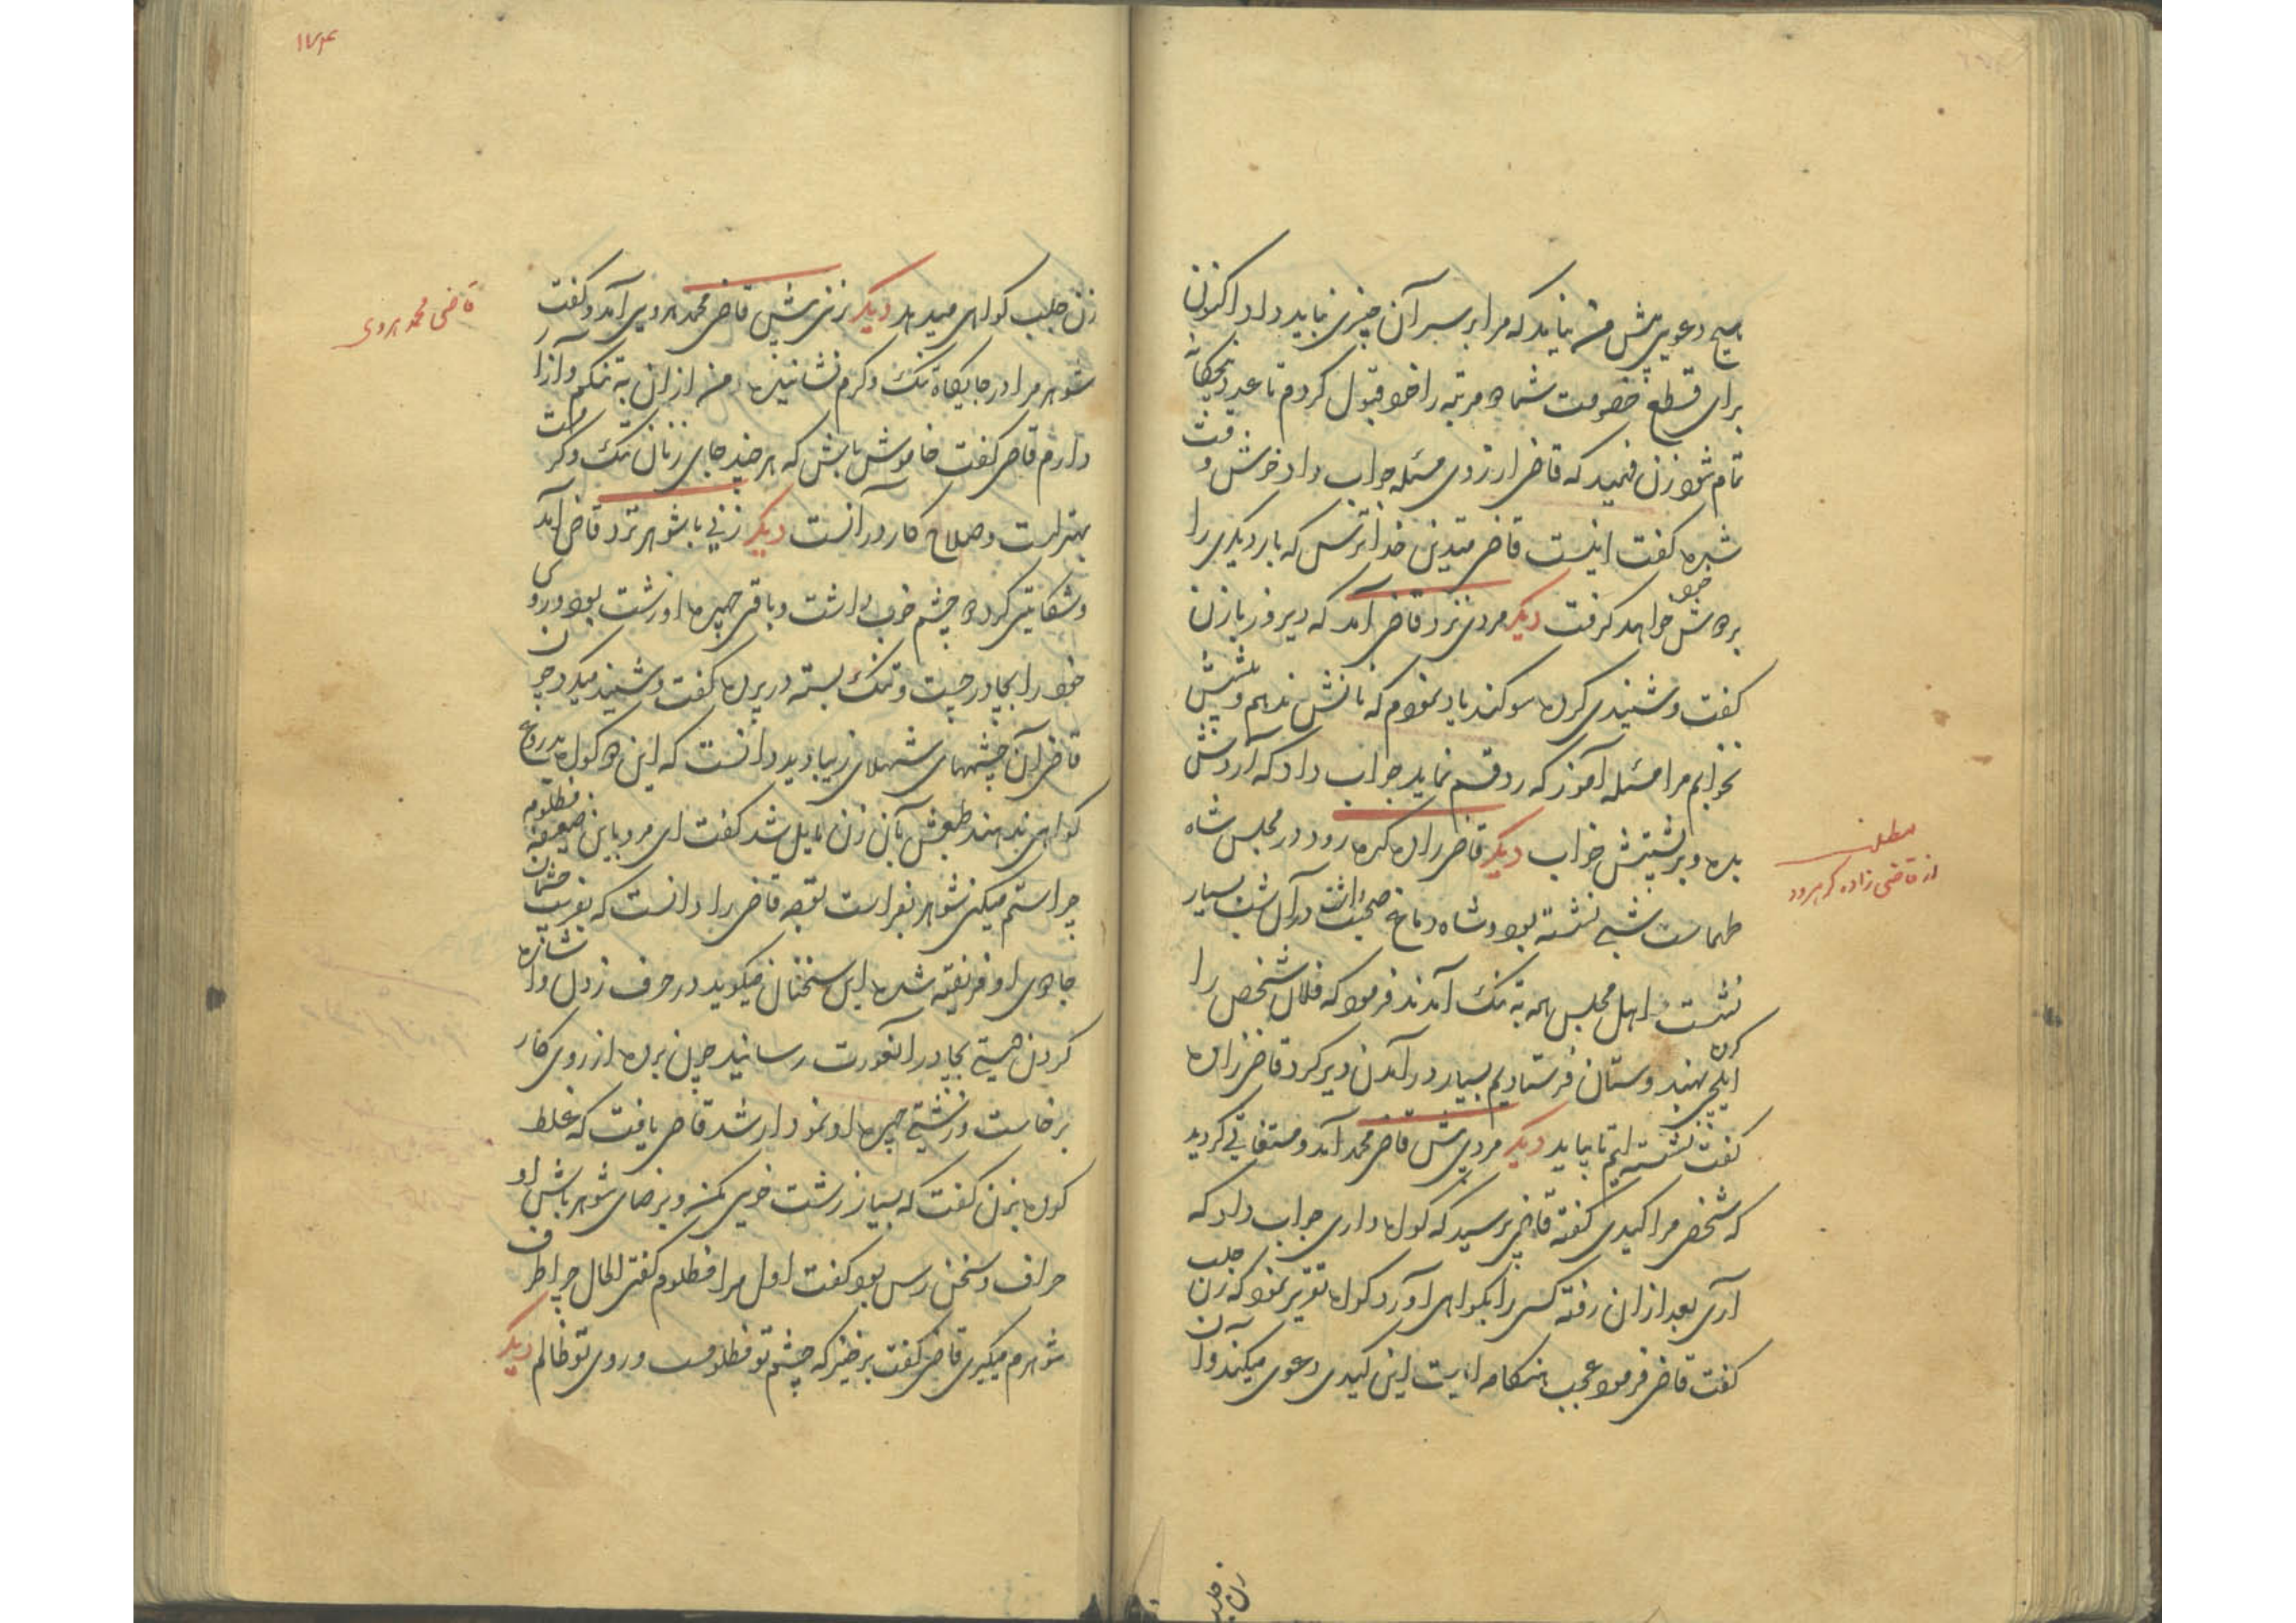 هیچ دعوی پیش من نیاید که مرا بر سر آن چیزی نباید داد اکنون
برای قطع خصومت شما ده مرتبه را خود قبول کردم تا عدد پنجگانه
تمام شود زن فهمید که قاضی از روی مسئله جواب داد خوش وقت
شده گفت اینست قاضی متدین خدا ترس که بار دیگری را
بر دوش خود خواهد گرفت دیگر مردی نزد قاضی آمد که دیروز با زن
گفت و شنیدی کرده سوگند یاد نمودم که نانش ندهم و پیشش
نخوابم مرا مسئله آموز که رد قسم نماید جواب داد که آردش
بده و بر پشتش خواب دیگر قاضی زاده کره رود در مجلس شاه
طهماسب شبی نشسته بود و شاه دماغ صحبت داشت در آن شب بسیار
نشست اهل مجلس همه به تنگ آمدند فرمود که فلان شخص را
ایلچی کرده بهندوستان فرستادیم بسیار در آمدن دیر کرد قاضی زاده
گفت نشسته ایم تا بیاید دیگر مردی پیش قاضی محمد آمد و مستغاثی گردید
که شخصی مرا کیدی گفته قاضی پرسید که گواه داری جواب داد که
آری بعد از آن رفته کسی را بگواهی آورد گواه تقریر نمود که زن جلب
گفت قاضی فرمود عجب هنگامه ایست این کیدی دعوی میکند و آن
زن جلب
مطلب
از قاضی زاده کرهرود
۱۷۴
زن جلب گواهی میدهد دیگر زنی پیش قاضی محمد هروی آمد و گفت
شوهر مرا در جایگاه تنگ و گرم نشانیده و من از آن به تنگم و آزار
دارم قاضی گفت خاموش باش که هر چند جای زنان تنگ و گرمست
بهتر است و صلاح کار در آنست دیگر زنی با شوهر نزد قاضی آمد
و شکایتی کرد و چشم خوب داشت و باقی چهره او زشت بود و روی
خود را بچادر چست و تنگ بسته در پرده گفت و شنید میکرد چون
قاضی آن چشمهای شهلای زیبا دید دانست که این دو گواه بدروغ
گواهی ندهند طبعش بآن زن مایل شد گفت ای مرد باین ضعیفه مظلومه
چرا ستم میکنی شوهر بفراست توجه قاضی را دانست که بفریب چشمان
جادوی او فریفته شده این سخنان میگوید در حرف زدن و اشاره
کردن دستی بچادر آنعورت رسانید چون پرده از روی کار
برخاست و زشتی چهره او نمودار شد قاضی یافت که غلط
کرده بزن گفت که بسیار زشت خویی مکن و برضای شوهر باش او
حراف و سخن رس بود گفت اول مرا مظلوم گفتی الحال چرا طرف
شوهرم میگیری قاضی گفت برخیز که چشم تو مظلومست و روی تو ظالم دیگر
قاضی محمد هروی